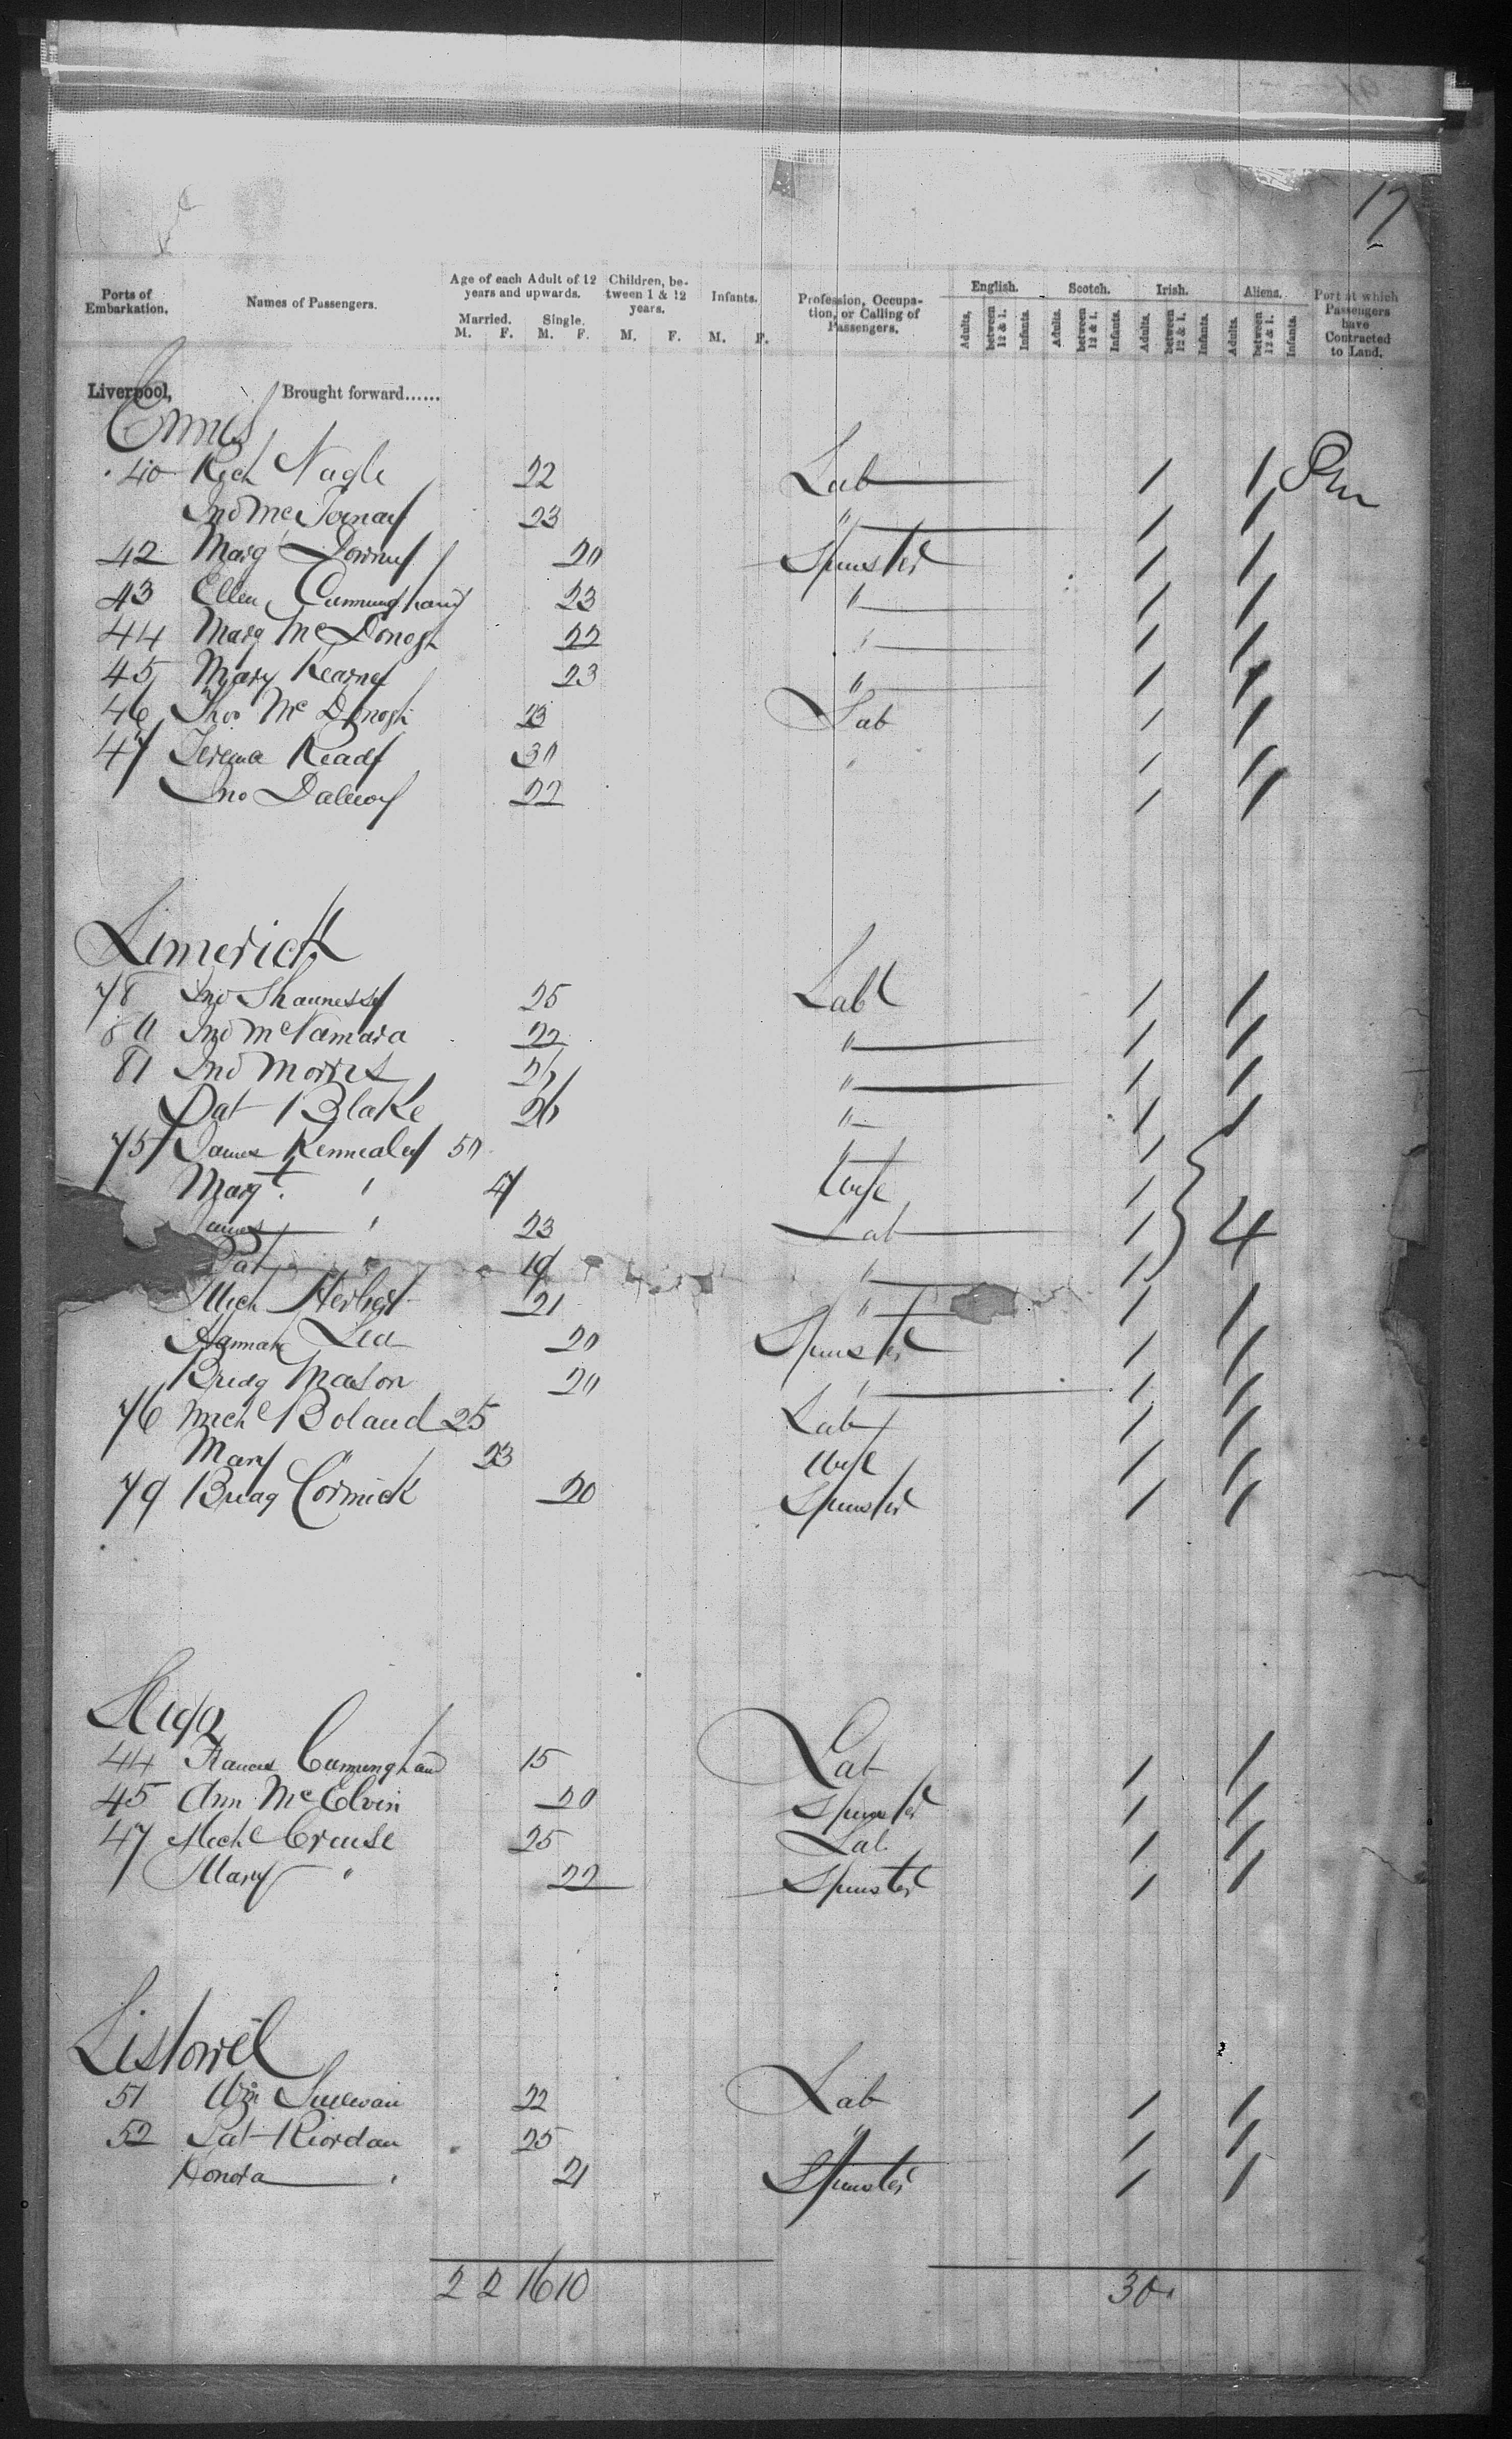 17
Ports of Embarkation. Names of Passengers. Age of each Adult of 12 years and upwards. Children, between 1 & 12 years. Infants. Profession, Occupation, or Calling of Passengers. English. Scotch. Irish. Aliens. Port at which Passengers have Contracted to Land.
Married. Single.
M. F. M. F. M. F. M. F. Adults, between 12 & 1. Infants. Adults. between 12 & 1. Infants. Adults. between 12 & 1. Infants. Adults. between 12 & 1. Infants.
Liverpool, Brought forward......
Ennis
40 Rich Nagle 22 Lab 1 1
Jno Mc 23 " 1 1
42 Marg Downey 20 Spinster 1 1
43 Ellen Cunningham 23 " 1 1
44 Marg McDonogh 22 " 1 1
45 Mary Kearney 23 " 1 1
46 Thos McDonogh 23 Lab 1 1
47 Ready 30 " 1 1
Jno 22 1 1
Limerick
78 Jno Shaunessy 25 Lab 1 1
80 Jno McNamara 22 " 1 1
81 Jno Morris 1 1
Pat Blake 26 " 1 1
75 James Kennealy 50 1
Margt. " Wife 1
James " 23 Lab 1 4
Pat " 19 " 1
Mich Herbert 21 " 1 1
Hannah Lea 20 Spinster 1 1
Bridg Mason 20 " 1 1
76 Michl Boland 25 Lab 1 1
Mary " 23 Wife 1 1
79 Bridg Cormick 20 Spinster 1 1
Sligo
44 Francis Cunningham 15 Lab 1 1
45 Ann McElvin 20 Spinster 1 1
47 Michl Cruise 25 Lab 1 1
Mary " 22 Spinster 1 1
Listowel
51 Wm Sullivan 22 Lab 1 1
52 Pat Riordan 25 " 1 1
Honora " 21 Spinster 1 1
2 2 16 10 30